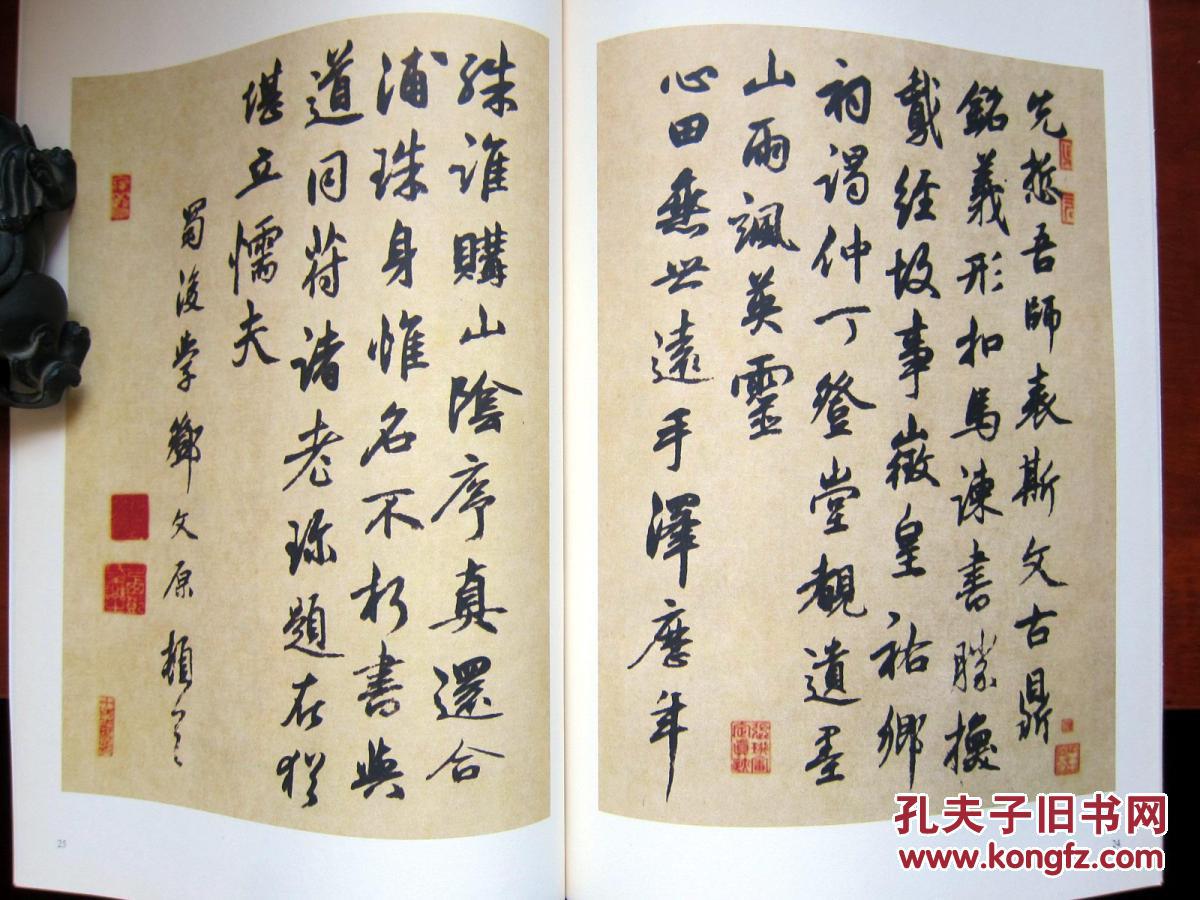 先悊吾師表斯文古鼎
銘義形扣馬諫書勝換
鵞經故事徵皇祐鄉
祠謁仲丁登堂觀遺墨
山雨颯英靈
心田無世遠手澤歷年
殊誰購山陰序真還合
浦珠身惟名不朽書與
道同符諸老珍題在猶
堪立懦夫
蜀後學鄧文原頓首
25
24
孔夫子旧书网
www.kongfz.com